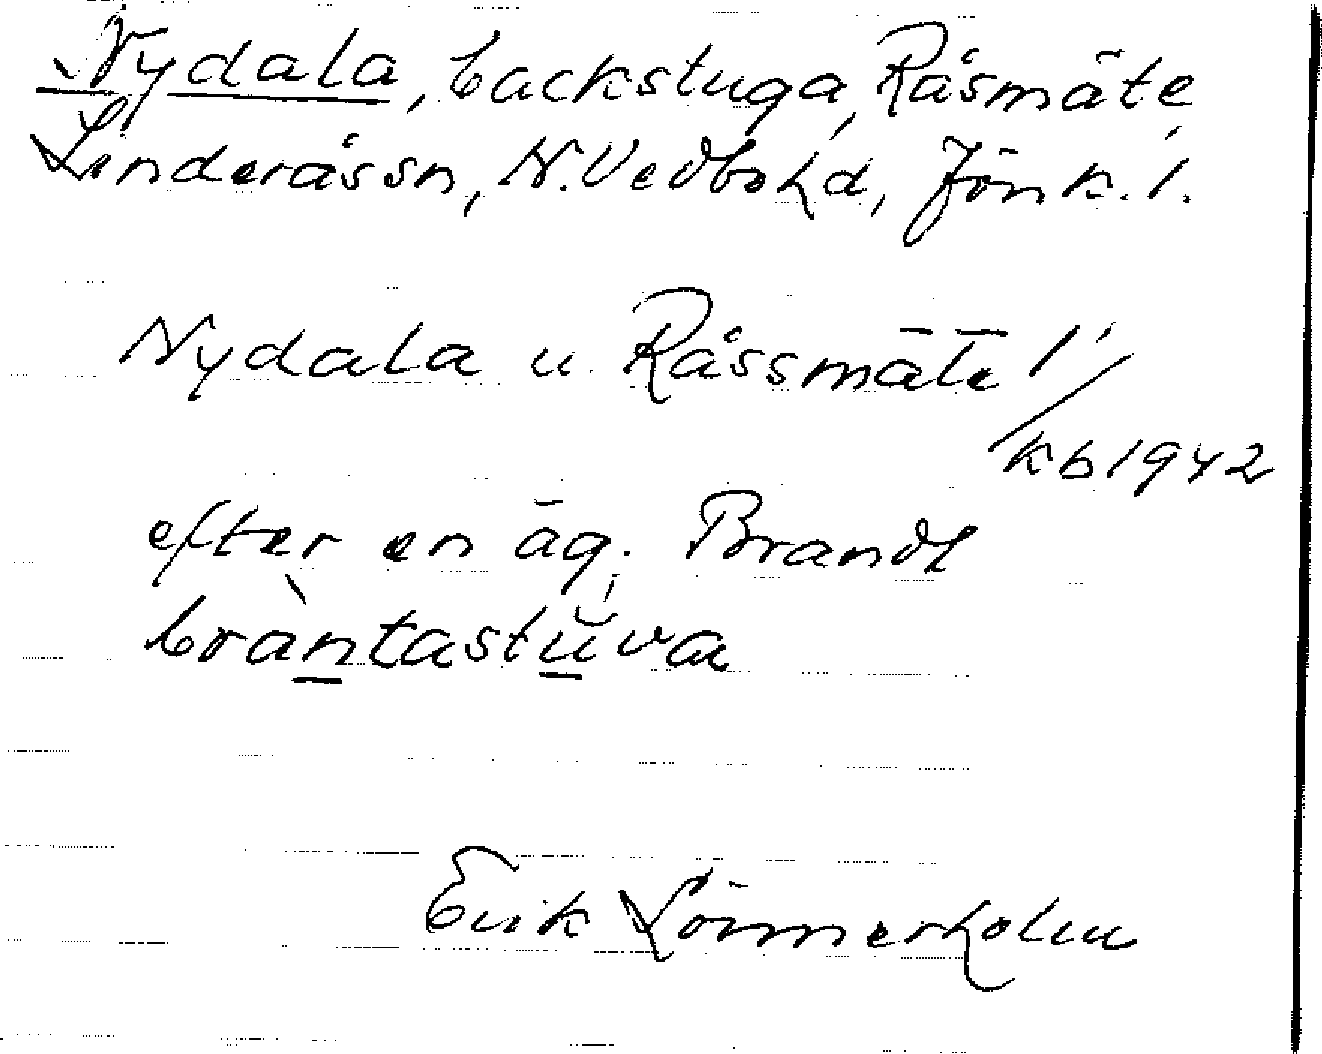 Nydala, backstuga, Råsmäte
Linderås sn, N. Vedbo hd, Jönk. l.
Nydala u. Råssmäte 1/
kb 1942
efter en äg. Brandt
bràntastuva
Erik Lönnerholm